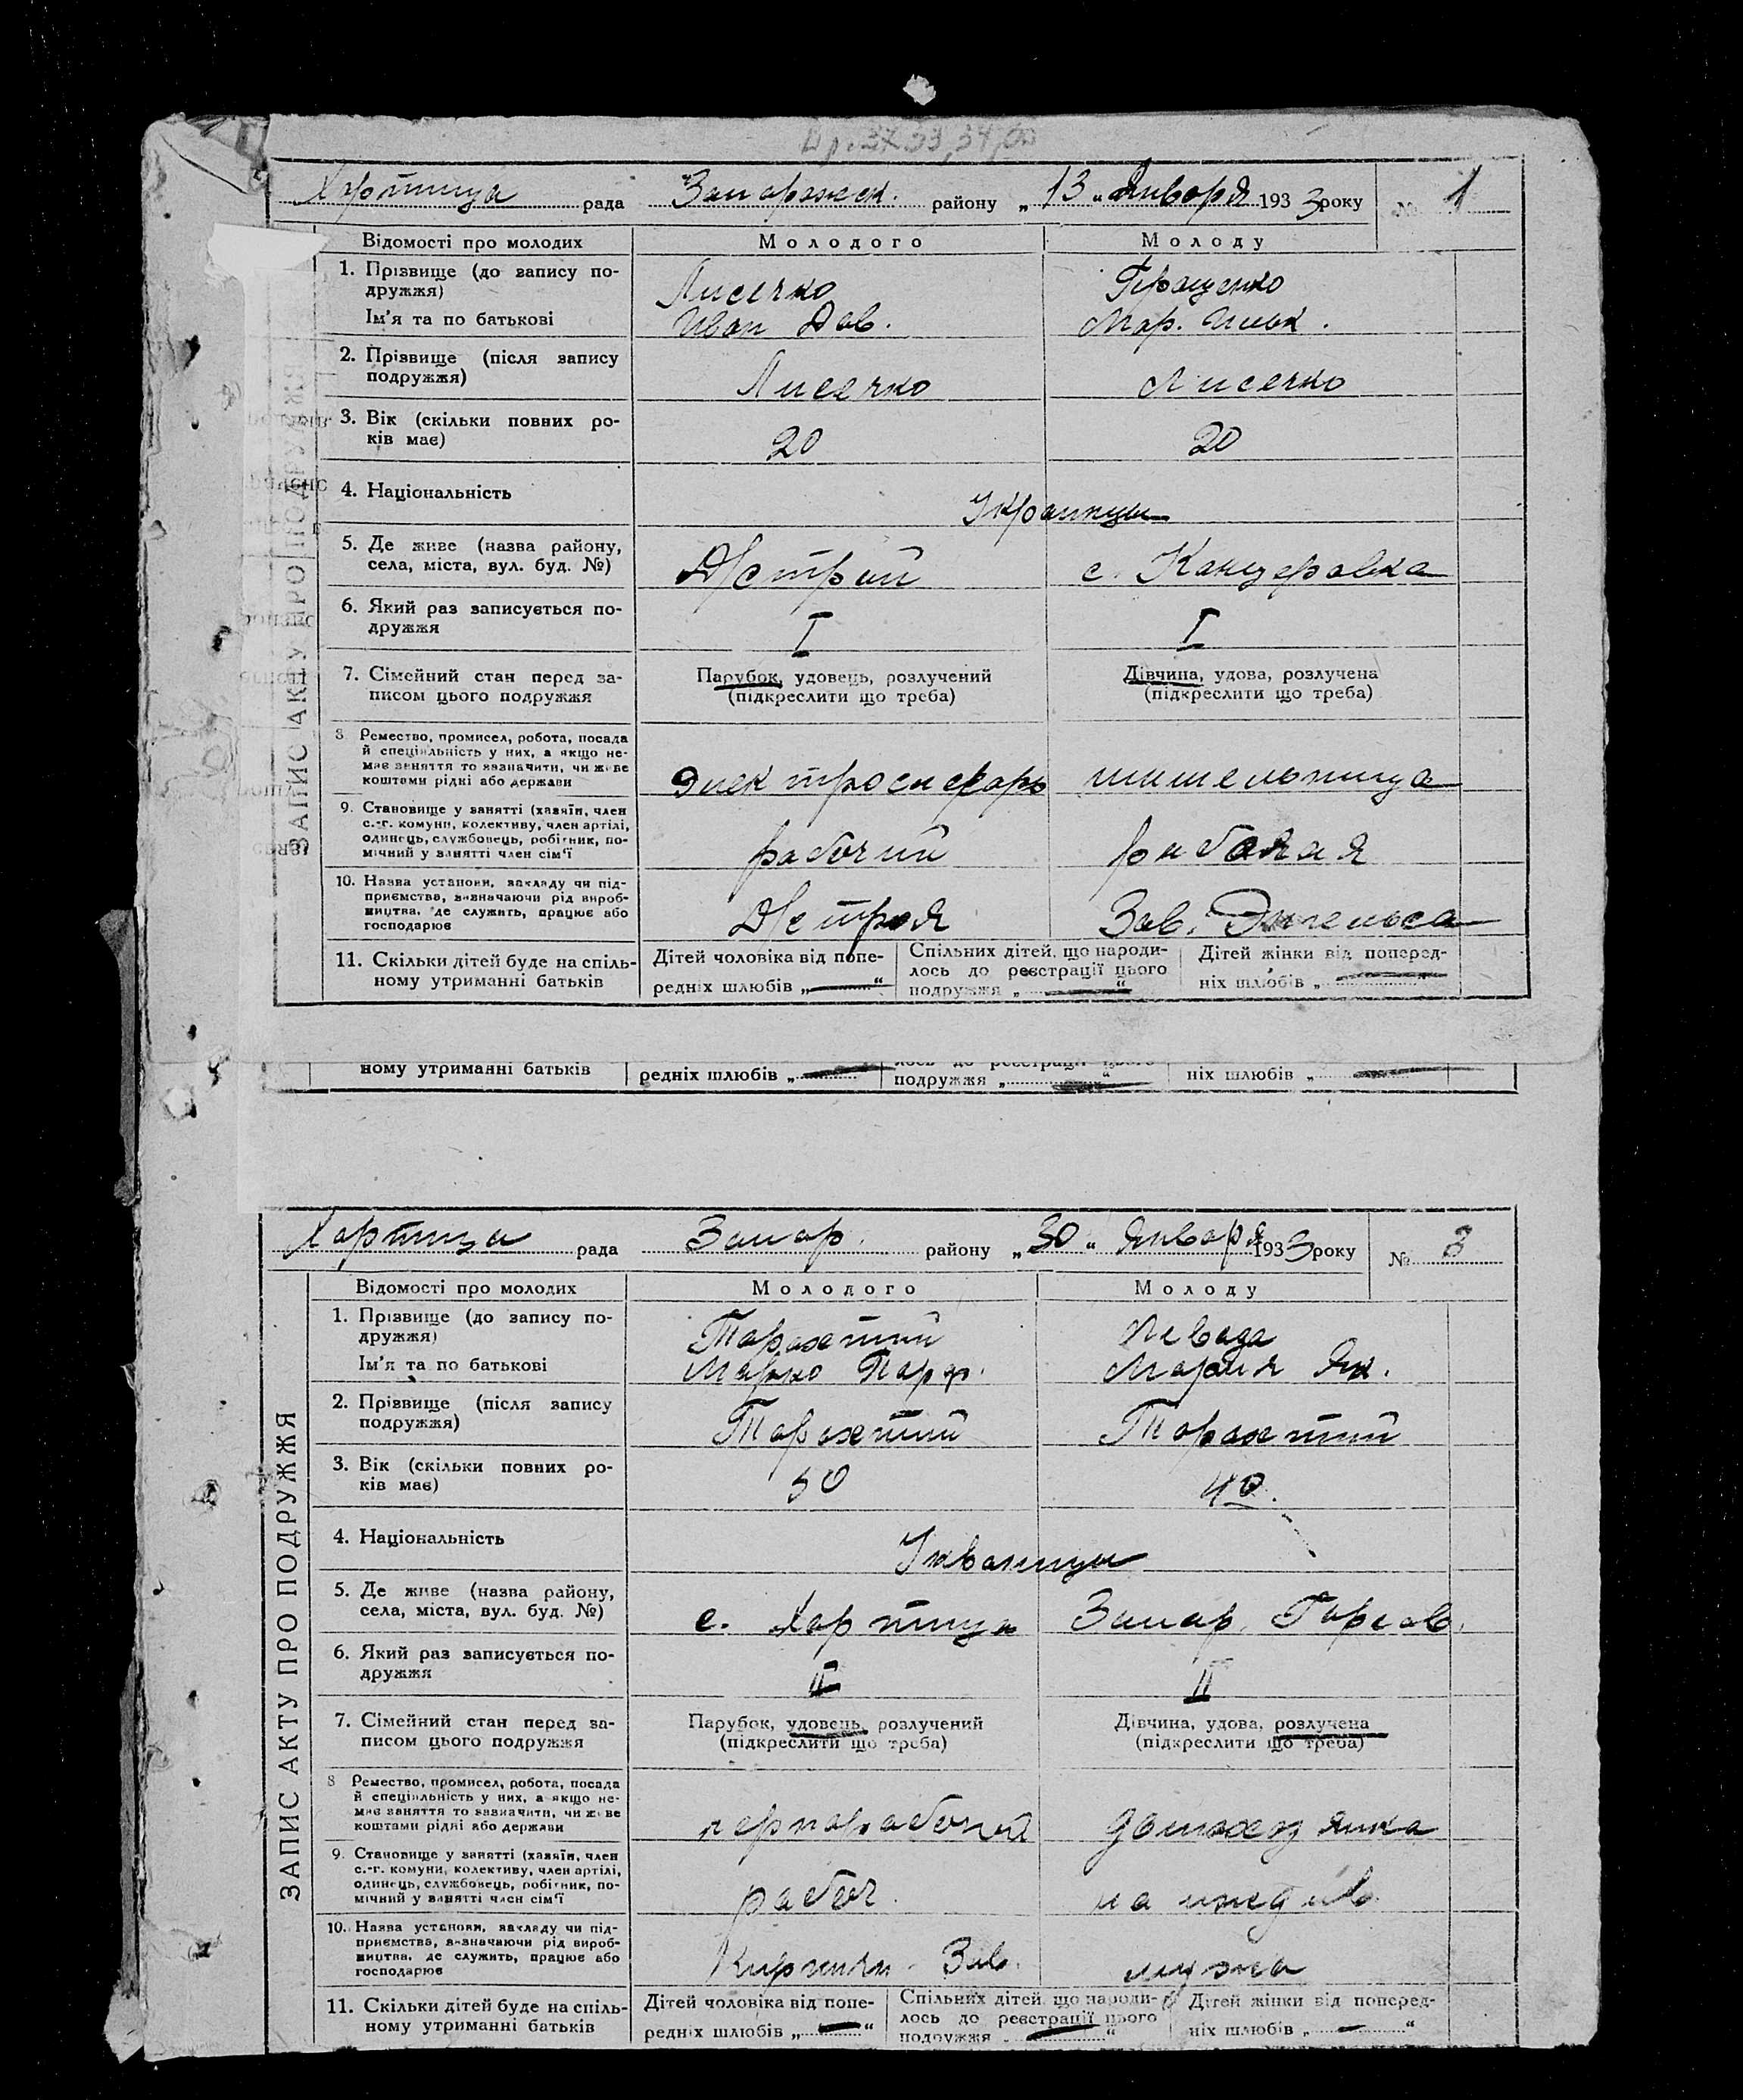 Хортица рада Запорожск. району „13" Января 1933 року № 1
Відомості про молодих Молодого Молоду
1. Прізвище (до запису по-
дружжя)
Лисечко Геращенко
Ім'я та по батькові Иван Дав. Мар.
2. Прізвище (після запису
подружжя)
Лисечко Лисечко
3. Вік (скільки повних ро-
ків має)
20 20
4. Національність
Украинцы
5. Де живе (назва району,
села, міста, вул. буд. №)
Д/строй с. Канцеровка
6. Який раз записується по-
дружжя
I I
7. Сімейний стан перед за-
писом цього подружжя
Парубок, удовець, розлучений
(підкреслити що треба)
Дівчина, удова, розлучена
(підкреслити що треба)
8 Ремество, промисел, робота, посада
й спеціяльність у них, а якщо не-
має заняття то зазначити, чи живе
коштами рідні або держави
электрослесарь
9. Становище у занятті (хазяїн, член
с.-г. комуни, колективу, член артілі,
одинець, службовець, робітник, по-
мічний у занятті член сім'ї
рабочий рабочая
10. Назва установи, закладу чи під-
приємства, визначаючи рід вироб-
ництва, де служить, працює або
господарює
Д/строя Зав. Энгельса
11. Скільки дітей буде на спіль-
ному утриманні батьків
Дітей чоловіка від попе-
редніх шлюбів „—"
Спільних дітей, що народи-
лось до реєстрації цього
подружжя „—"
Дітей жінки від поперед-
ніх шлюбів „—
ЗАПИС АКТУ ПРО ПОДРУЖЖЯ
ному утриманні батьків редніх шлюбів „— лось до реєстрації цього
подружжя „—" ніх шлюбів „—
Хортица рада Запор. району „30" Января 1933 року № 3
Відомості про молодих Молодого Молоду
1. Прізвище (до запису по-
дружжя)
Ім'я та по батькові Марко Парф. Мария Як.
2. Прізвище (після запису
подружжя)
3. Вік (скільки повних ро-
ків має)
50 40.
4. Національність
Украинцы
5. Де живе (назва району,
села, міста, вул. буд. №)
с. Хортица Запор.
6. Який раз записується по-
дружжя
II II
7. Сімейний стан перед за-
писом цього подружжя
Парубок, удовець, розлучений
(підкреслити що треба)
Дівчина, удова, розлучена
(підкреслити що треба)
8 Ремество, промисел, робота, посада
й спеціяльність у них, а якщо не-
має заняття то зазначити, чи живе
коштами рідні або держави
чернорабочий домохозяйка
9. Становище у занятті (хазяїн, член
с.-г. комуни, колективу, член артілі,
одинець, службовець, робітник, по-
мічний у занятті член сім'ї
рабоч. на иждив.
10. Назва установи, закладу чи під-
приємства, визначаючи рід вироб-
ництва, де служить, працює або
господарює
Кирпичн. Зав. мужа
11. Скільки дітей буде на спіль-
ному утриманні батьків
Дітей чоловіка від попе-
редніх шлюбів „—"
Спільних дітей, що народи-
лось до реєстрації цього
подружжя „—"
Дітей жінки від поперед-
ніх шлюбів „—"
ЗАПИС АКТУ ПРО ПОДРУЖЖЯ